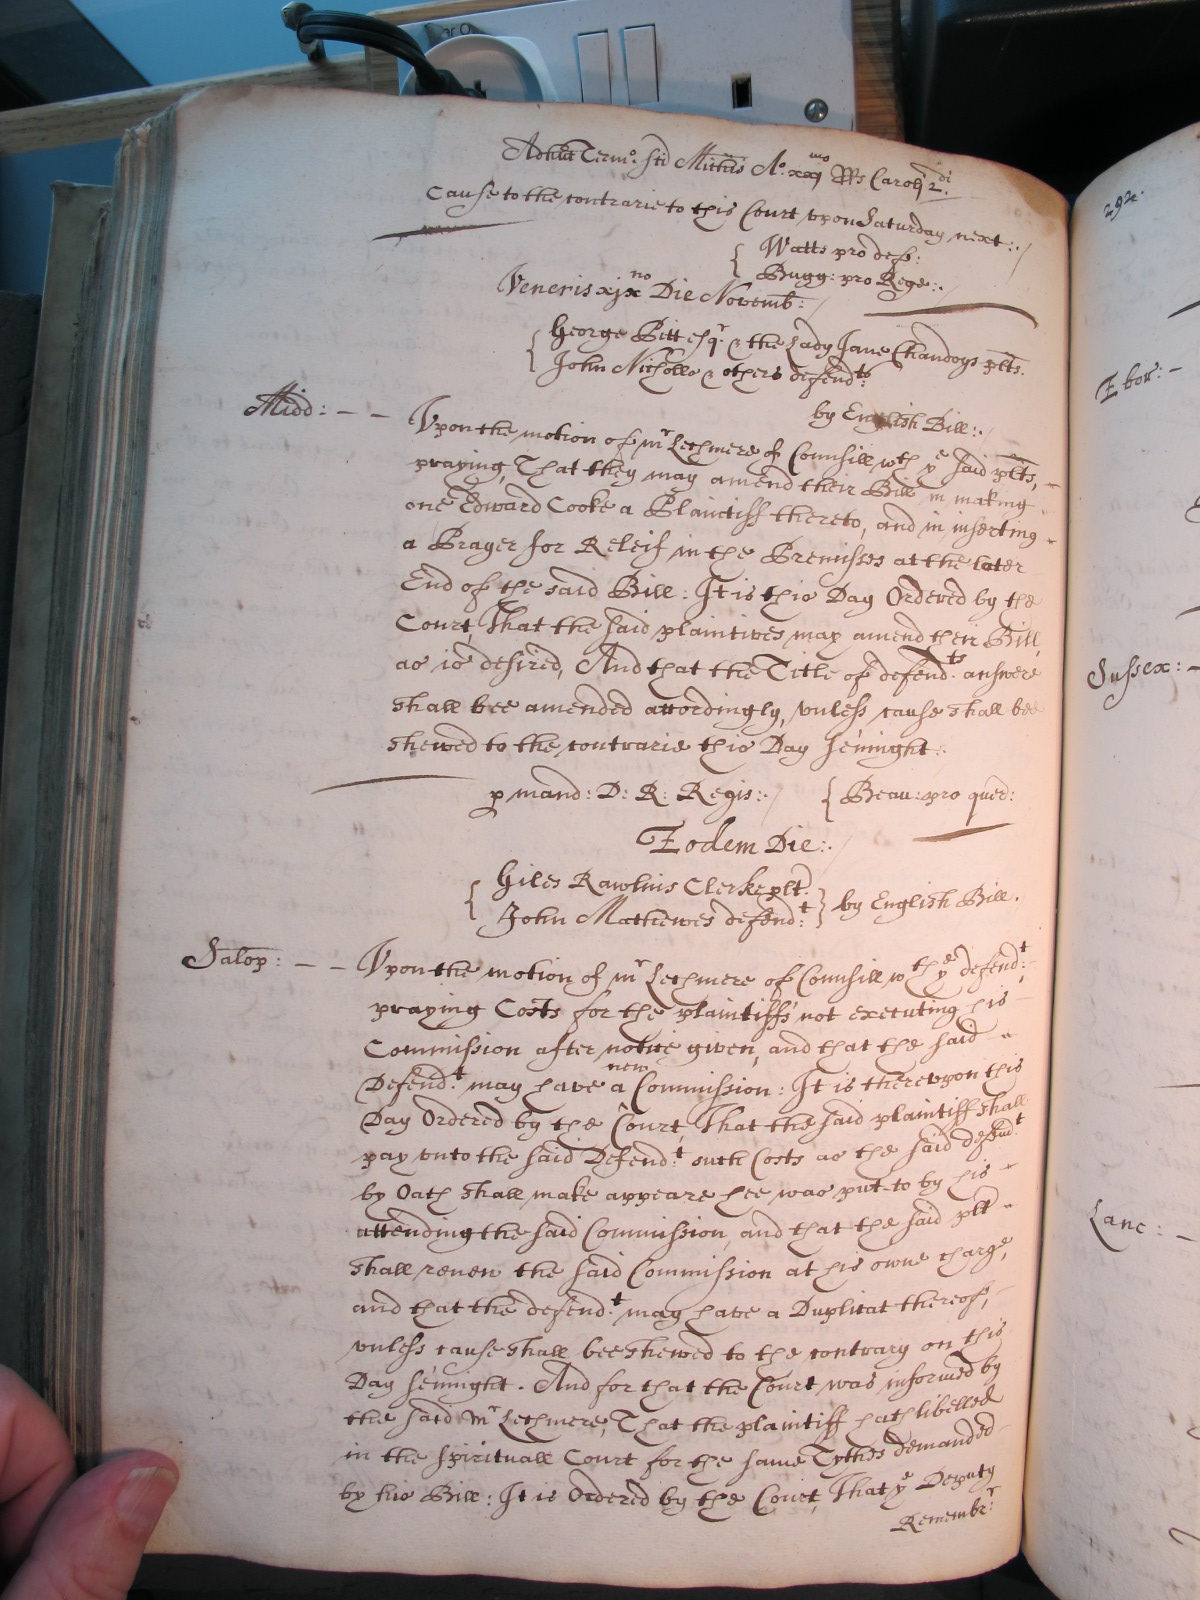 Adhuc Termo: Sti Michis Ao: xxjmo Rs Carolj 2di.
Cause to the contrarie to this Court vpon Saturday next:.
Watts pro def:
Bugg: pro Rege:.
Veneris xjxno Die Novemb:
George Pitt esqr. & the Lady Jane Chandoys plts.
John Nicholls & others defendts:
by English Bill:.
Midd: - - Vpon the motion of mr Lechmere of Counsill wth ye said plts,
praying, That they may amend their Bill in making
one Edward Cooke a Plaintiff thereto, and in inserting
a Prayer for Releif in the Premisses at the later
End of the said Bill: It is this Day Ordered by the
Court, That the said plaintives may amend their Bill,
as is desired, And that the Title of defendts: answere
shall bee amended accordingly, vnless cause shall bee
shewed to the contrarie this Day Sennight:.
p mand: D: R: Regis:. Beau: pro quer:
Eodem Die:.
Giles Rawlins Clerke plt.
John Mathewes defendt: by English Bill.
Salop: - - Vpon the motion of mr Lechmere of Counsill wth ye defendt:,
praying Costs for the plaintiffs not executing his
Commission after notice given, and that the said
Defendt: may have a new Commission: It is therevpon this
Day Ordered by the Court, That the said plaintiff shall
pay vnto the said Defendt: such Costs as the said defendt:
by Oath shall make appeare hee was put to by his
attending the said Commission, and that the said plt
shall renew the said Commission at his owne charge,
and that the defendt: may have a Duplicat thereof,
vnless cause shall bee shewed to the contrary on this
Day Sennight. And for that the Court was informed by
the said Mr Lechmere, That the plaintiff hath libelled
in the Spirituall Court for the same Tythes demanded
by his Bill: It is Ordered by the Court, That ye Deputy
Remembr:
292.
Ebor: -
Sussex: -
Lanc: -